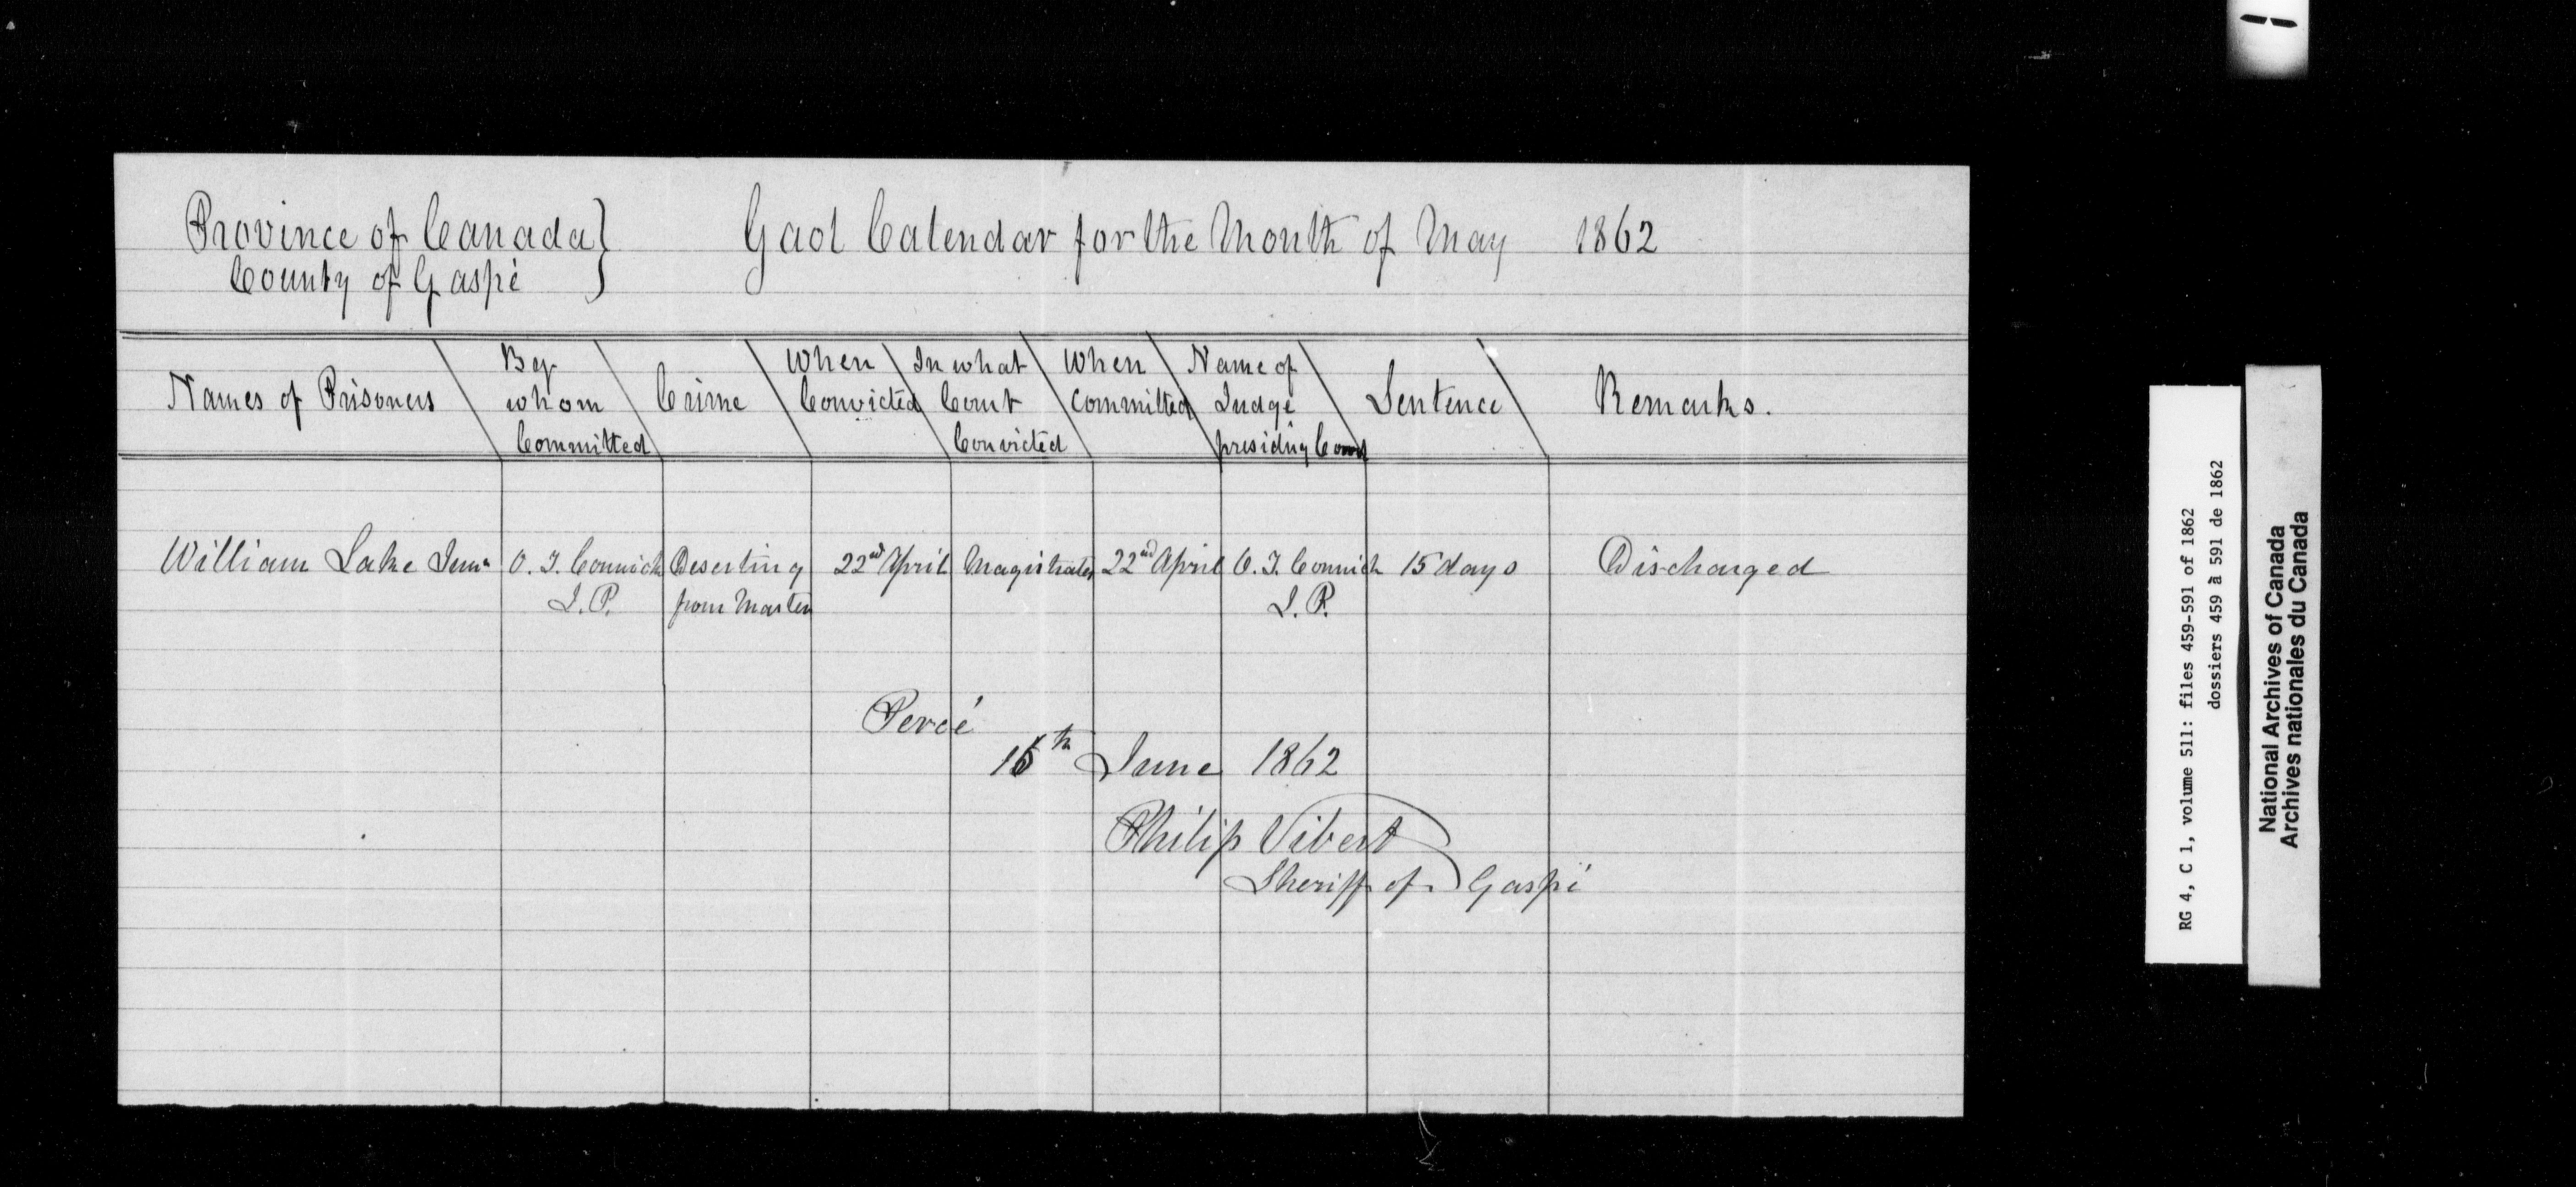 Province of Canada }
County of Gaspé
Gaol Calendar for the Month of May 1862
Names of Prisoners
By whom Committed
Crime
When Convicted
In what Court Convicted
When Committed
Name of Judge presiding Court
Sentence
Remarks.
William Lake Junr
J. P.
Deserting from Master
22nd April
Magistrates
22nd April
J. P.
15 days
Discharged
Percé
June 1862
Philip Vibert
Sheriff of Gaspé
RG 4, C 1, volume 511: files 459-591 of 1862
dossiers 459 à 591 de 1862
National Archives of Canada
Archives nationales du Canada